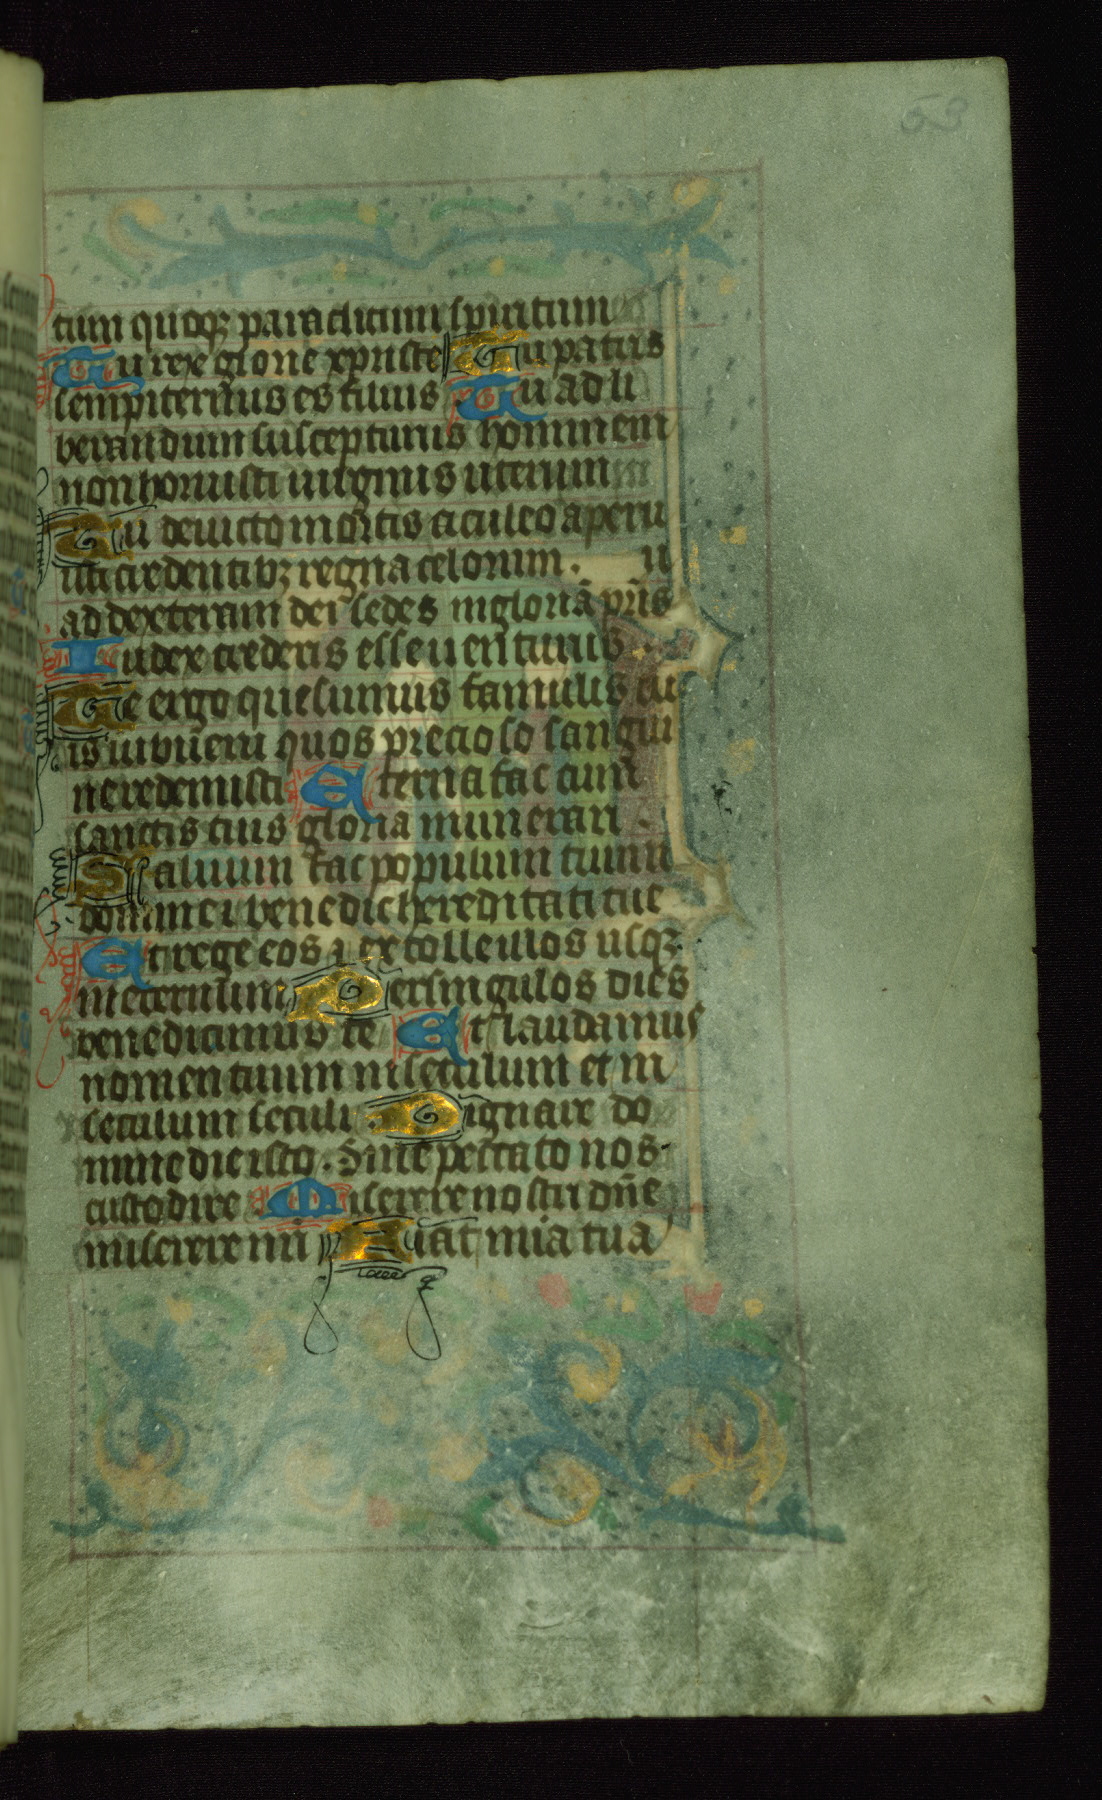 53
tum quoqz paraclitum spiritum
Tu rex glorie xpriste Tu patris
sempiternus es filius Tu ad li
berandum suscepturus hominem
non horruisti uirginis uterum
Tu deuicto mortis aculeo aperu
isti credentibz regna celorum . u
ad dexteram dei sedes in gloria pr̄is
Iudex crederis esse uenturus
Te ergo quesumus famulis tu
is subueni quos precioso sangui
ne redemisti Eterna fac cum
sanctis tuis gloria munerari .
Saluum fac populum tuum
domine ⁊ benedic hereditati tue
Et rege eos ⁊ extolle illos usqz
in eternum Per singulos dies
benedicimus te Et laudamus
nomen tuum in seculum et in
seculum seculi . Dignare do
mine die isto . Sine peccato nos
custodire Miserere nostri dn̄e
miserere nr̄i Fiat mīa tua